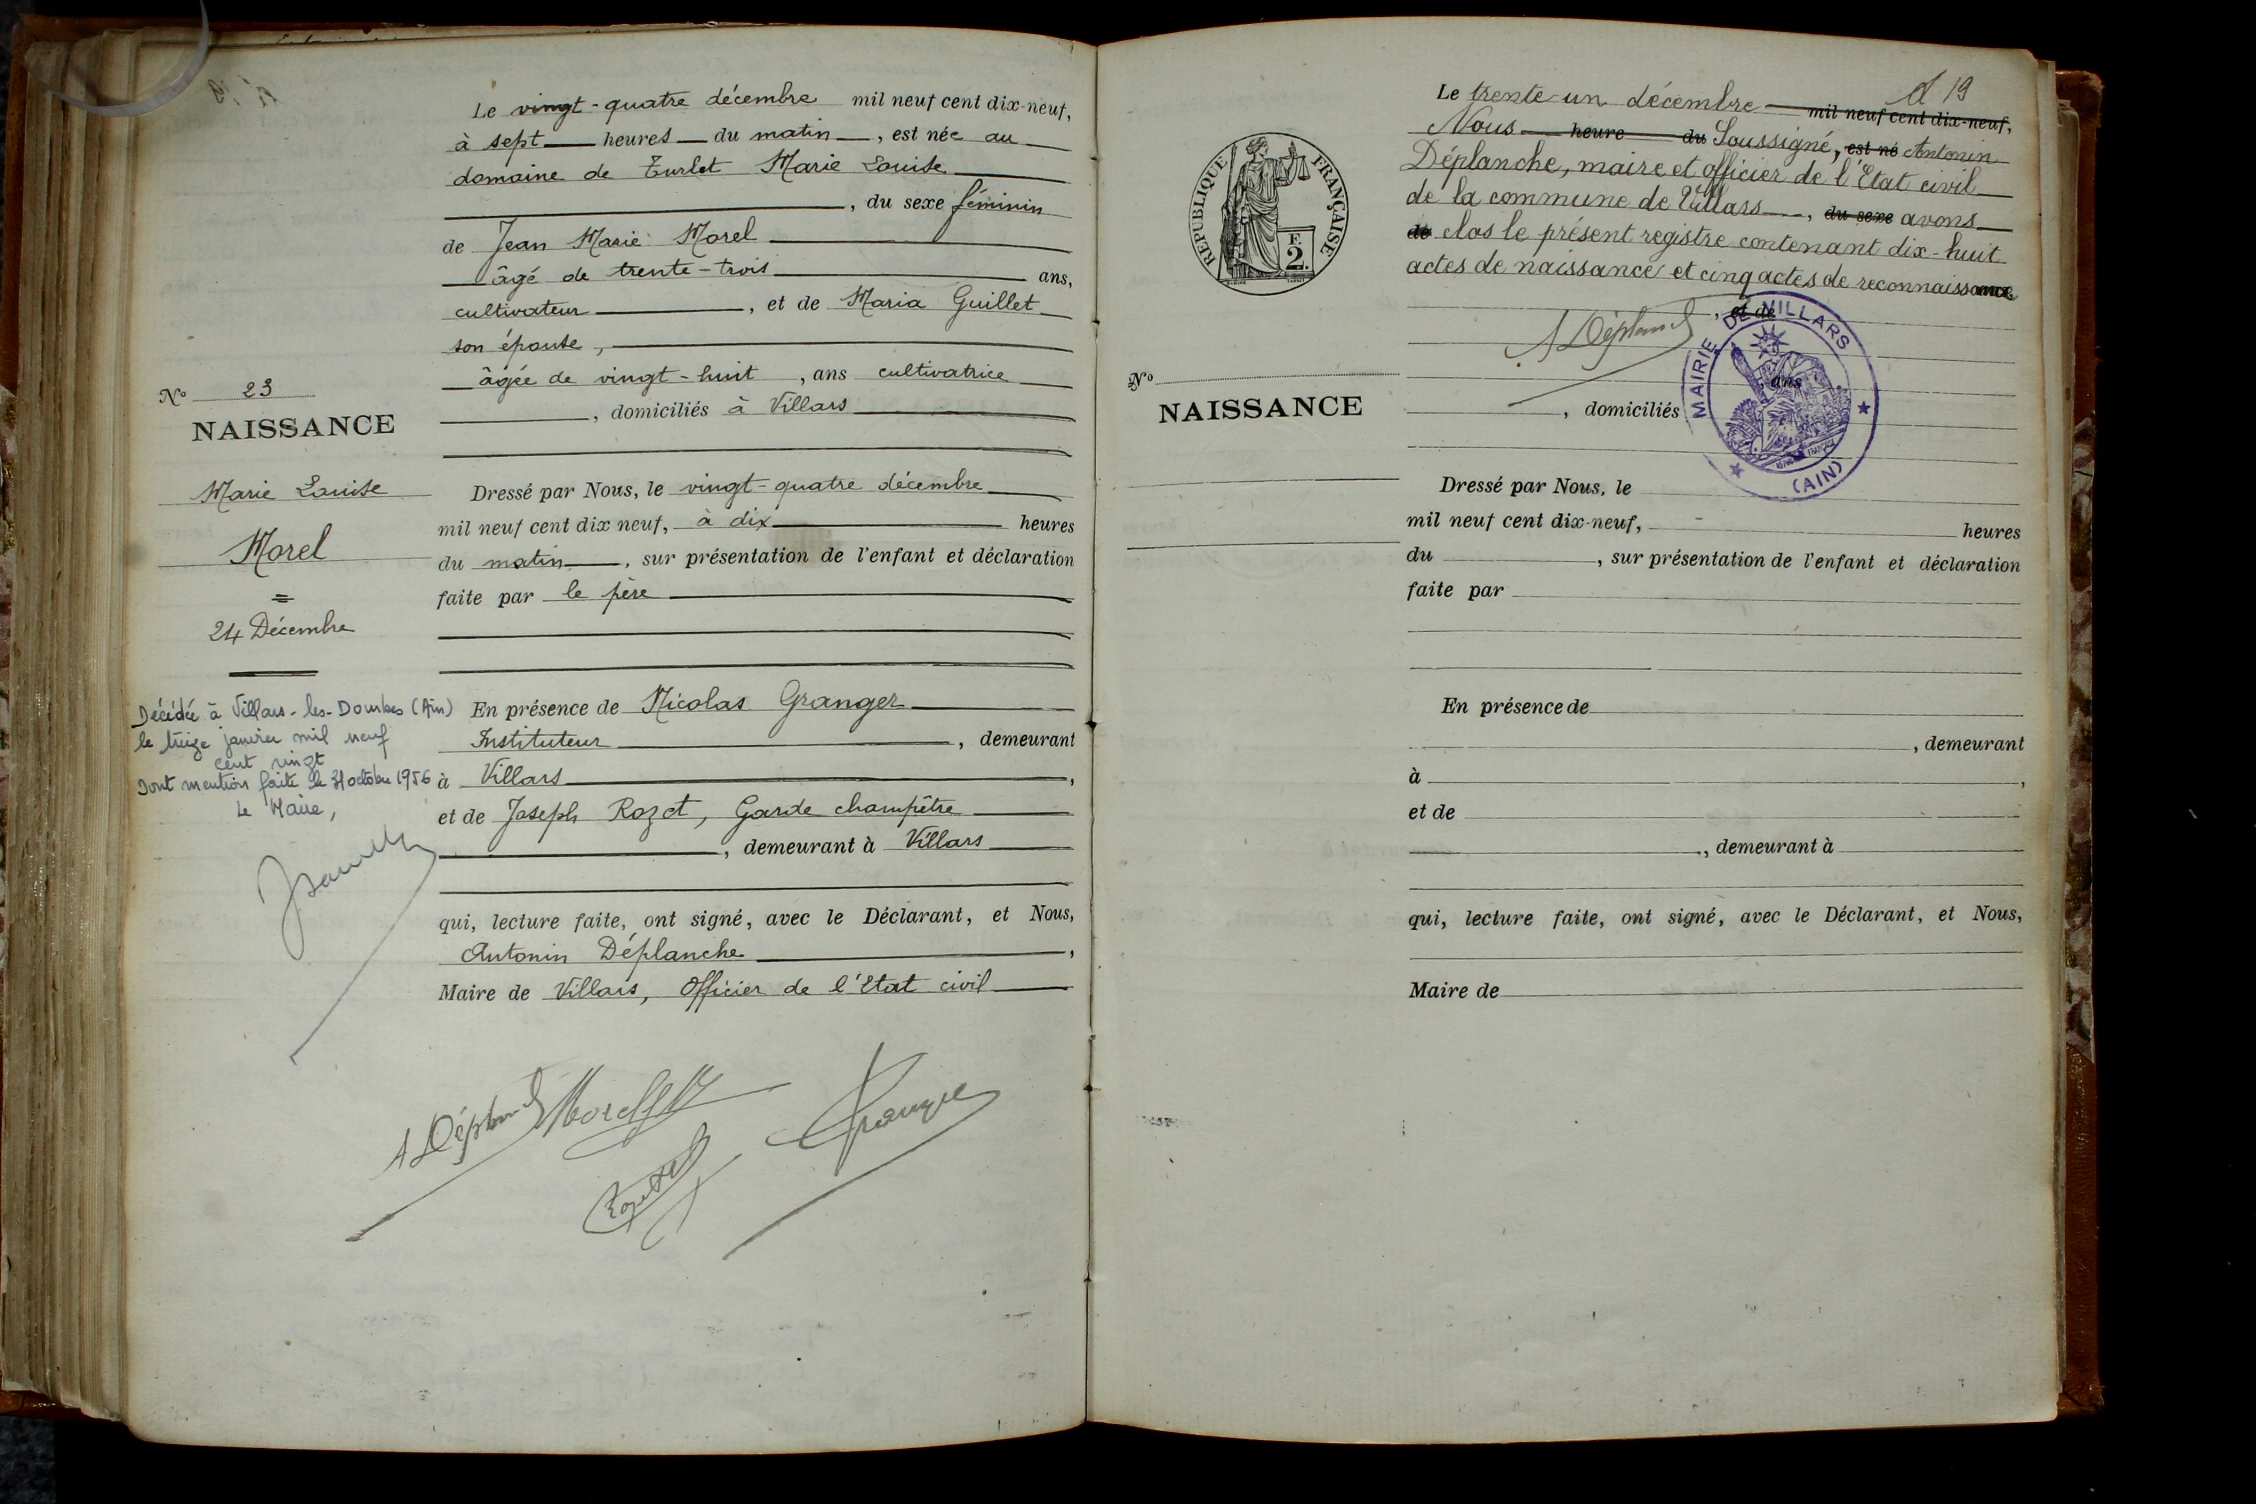 Le vingt-quatre décembre mil neuf cent dix-neuf,
à sept heures du matin, est née au
domaine de Turlet Marie Louise
, du sexe féminin
de Jean Marie Morel
âgé de trente-trois ans,
cultivateur, et de Maria Guillet
son épouse,
âgée de vingt-huit, ans cultivatrice
, domiciliés à Villars
Dressé par Nous, le vingt-quatre décembre
mil neuf cent dix neuf, à dix heures
du matin, sur présentation de l'enfant et déclaration
faite par le père
En présence de Nicolas Granger
Instituteur, demeurant
à Villars,
et de Joseph Rozet, Garde champêtre
, demeurant à Villars
qui, lecture faite, ont signé, avec le Déclarant, et Nous,
Antonin Déplanche,
Maire de Villars, Officier de l'Etat civil
A Déplanche Morel JM
Rozet Granger
No 23
NAISSANCE
Marie Louise
Morel
24 Décembre
Décédée à Villars-les-Dombes (Ain)
le treize janvier mil neuf
cent vingt
Dont mention faite le 31 octobre 1956
Le Maire,
RÉPUBLIQUE FRANÇAISE
F.
2
No
NAISSANCE
19
Le trente-un décembre mil neuf cent dix-neuf,
Nous heure du Soussigné, est né Antonin
Déplanche, maire et officier de l'Etat civil
de la commune de Villars, du sexe avons
de clos le présent registre contenant dix-huit
actes de naissance et cinq actes de reconnaissance
, et de
A Déplanche
MAIRIE DE VILLARS
(AIN)
ans
, domiciliés
Dressé par Nous, le
mil neuf cent dix-neuf, heures
du, sur présentation de l'enfant et déclaration
faite par
En présence de
, demeurant
à,
et de
, demeurant à
qui, lecture faite, ont signé, avec le Déclarant, et Nous,
Maire de